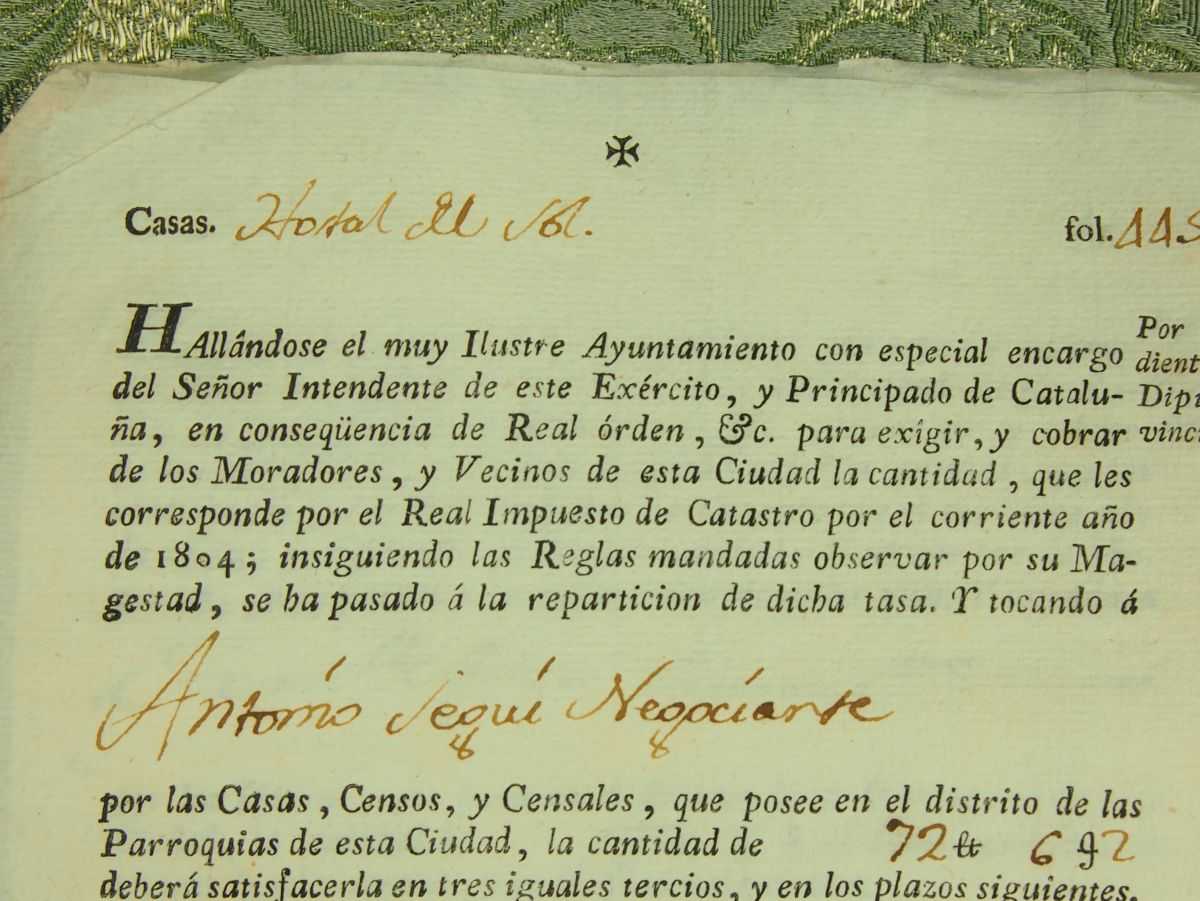 ✠
Casas. Hostal del Sol. fol. 445
HAllándose el muy Ilustre Ayuntamiento con especial encargo
del Señor Intendente de este Exército, y Principado de Catalu-
ña, en conseqüencia de Real órden, &c. para exîgir, y cobrar
de los Moradores, y Vecinos de esta Ciudad la cantidad, que les
corresponde por el Real Impuesto de Catastro por el corriente año
de 1804; insiguiendo las Reglas mandadas observar por su Ma-
gestad, se ha pasado á la reparticion de dicha tasa. Y tocando á
Antonio Seguí Negociante
por las Casas, Censos, y Censales, que posee en el distrito de las
Parroquias de esta Ciudad, la cantidad de 72 ₶ 6 ꝭ 2
deberá satisfacerla en tres iguales tercios, y en los plazos siguientes.
Por
dient
Dipu
vinc